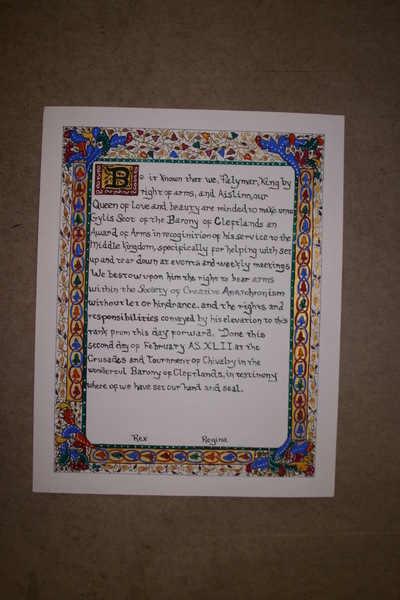 Be it known that we, Palymar, King by
right of arms, and Aislinn, our
Queen of love and beauty are minded to make onto
Gylis Scot of the Barony of Cleftlands an
Award of Arms in recoginition of his service to the
Middle Kingdom, specifically for helping with set
up and tear down at events and weekly meetings
We bestow upon him the right to bear arms
within the Society of Creative Anachronism
without let or hindrance, and the rights and
responsibilities conveyed by his elevation to this
rank from this day forward. Done this
second day of February A.S. XLII at the
Crusades and Tournment of Chivalry in the
wonderful Barony of Cleftlands, in testimony
where of we have set our hand and seal.
Rex Regina